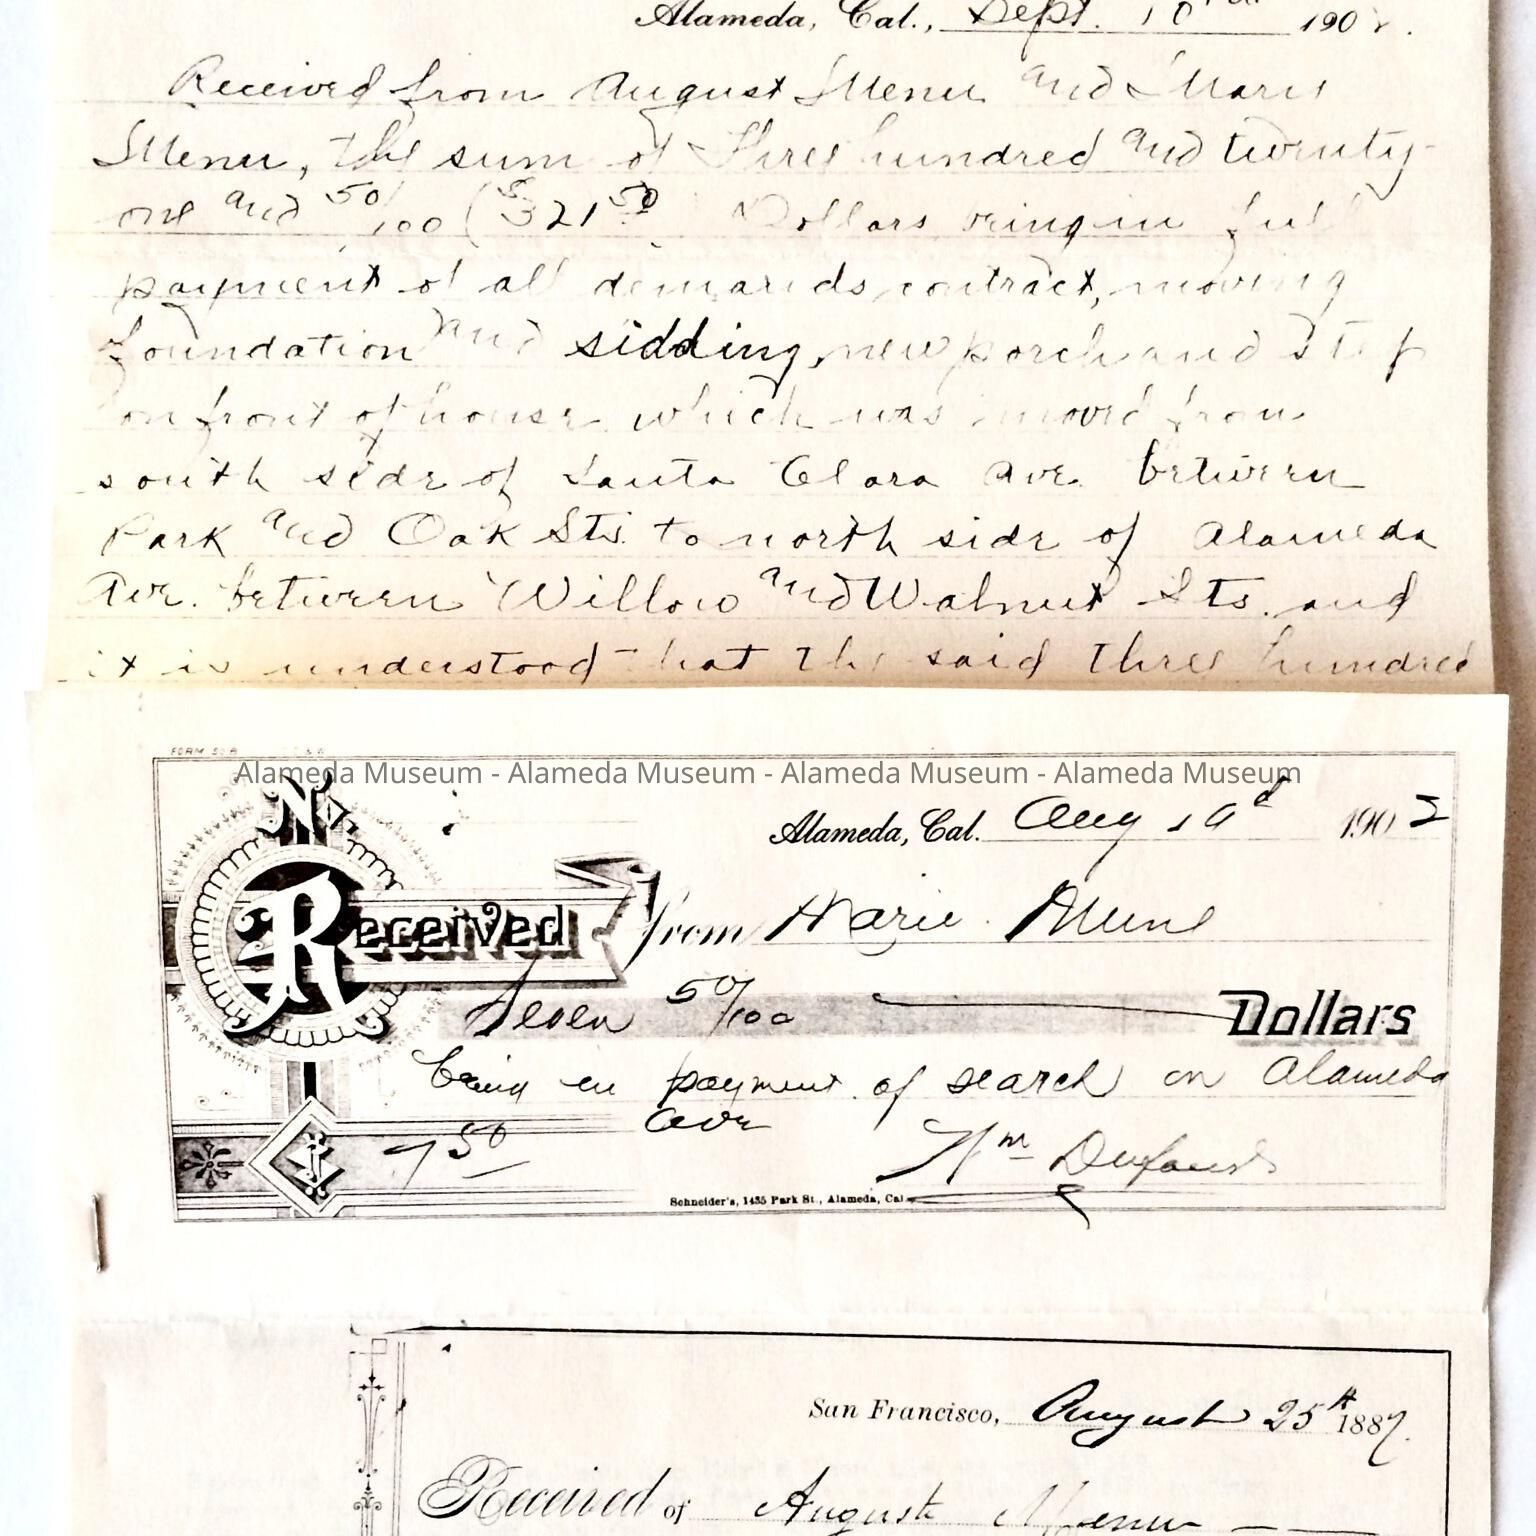 Alameda, Cal., Sept. 10th 1902.
Received from August Menu and Marie
Menu, the sum of Three hundred and twenty-
one and 50/100 ($321 50 Dollars being in full
payment of all demands, contract, moving
foundation and sidding, new porch and step
on front of house which was moved from
south side of Santa Clara Ave. between
Park and Oak Sts. to north side of Alameda
Ave. between Willow and Walnut Sts. and
it is understood that the said three hundred
FORM 50 B
Alameda Museum - Alameda Museum - Alameda Museum - Alameda Museum
No.
Alameda, Cal. Aug 19 1902
Received from Marie Menu
Seven 50/100 Dollars
being in payment of search on Alameda
Ave
$ 7 50
Wm
Schneider's, 1435 Park St., Alameda, Cal.
San Francisco, August 25th 1887.
Received of August Menu